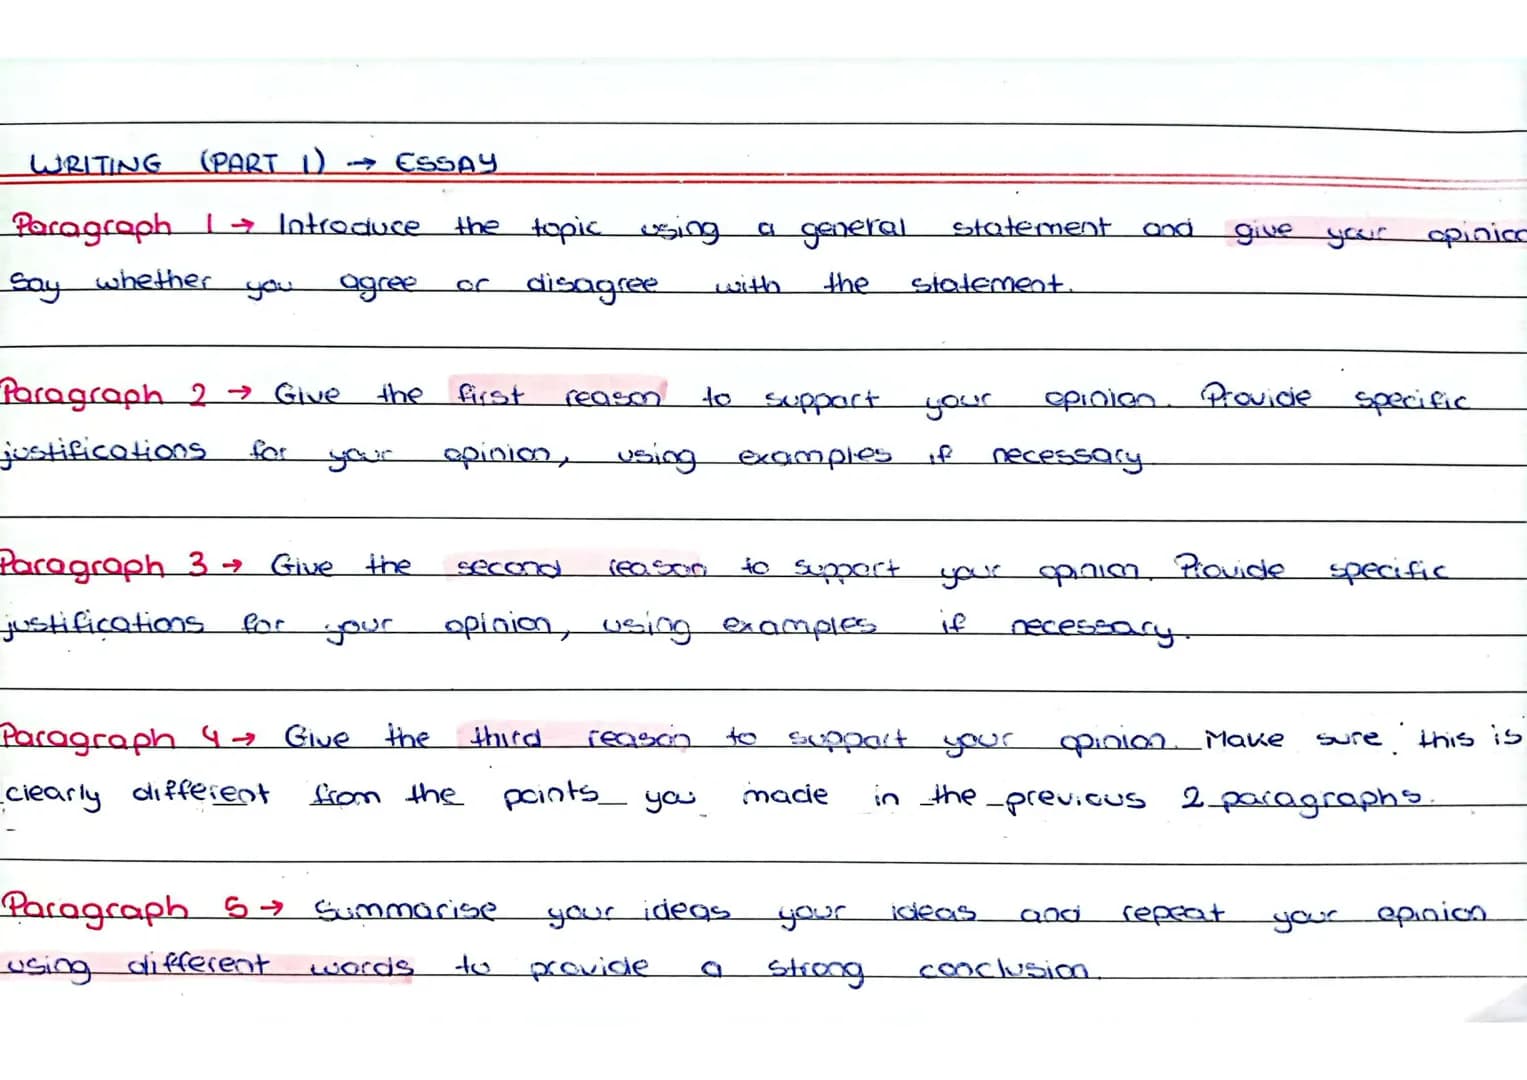 WRITING (PART 1) → ESSAY
Paragraph 1 → Introduce the topic using a general statement and give your
Say whether you agree or disagree with the statement.
Paragraph 2 → Give the first reason to support your opinion. Provide specific
justifications for your opinion, using examples if necessary
Paragraph 3 → Give the second reason to support your opinion. Provide specific
justifications for your opinion, using examples if necessary.
Paragraph 4 → Give the third reason to support your opinion. Make sure this is
clearly different from the points you made in the previous 2 paragraphs.
Paragraph 5 → Summarise your ideas your ideas and repeat your opinion
using different words to provide a strong conclusion.